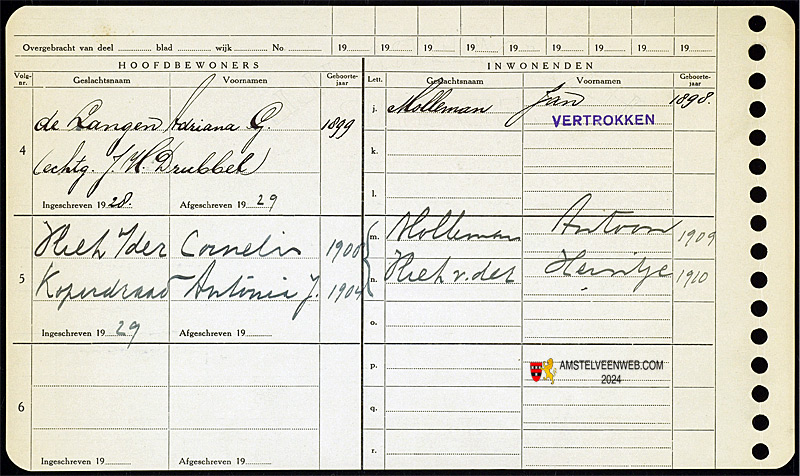 Overgebracht van deel blad wijk No. 19 19 19 19 19 19 19 19 19
HOOFDBEWONERS INWONENDEN
Volg-nr. Geslachtsnaam Voornamen Geboorte-jaar Lett. Geslachtsnaam Voornamen Geboorte-jaar
4 de Langen Adriana G. 1899 j. Molleman Jan 1898.
VERTROKKEN
(echtg. J. H. Drubbel) k.
l.
Ingeschreven 1928. Afgeschreven 1929
5 Cornelis 1900 m. Molleman Antoon 1909
Koperdraad Antonia J. 1904 n. v. der Heintje 1910
o.
Ingeschreven 1929 Afgeschreven 19
p.
AMSTELVEENWEB.COM
2024
6 q.
r.
Ingeschreven 19 Afgeschreven 19